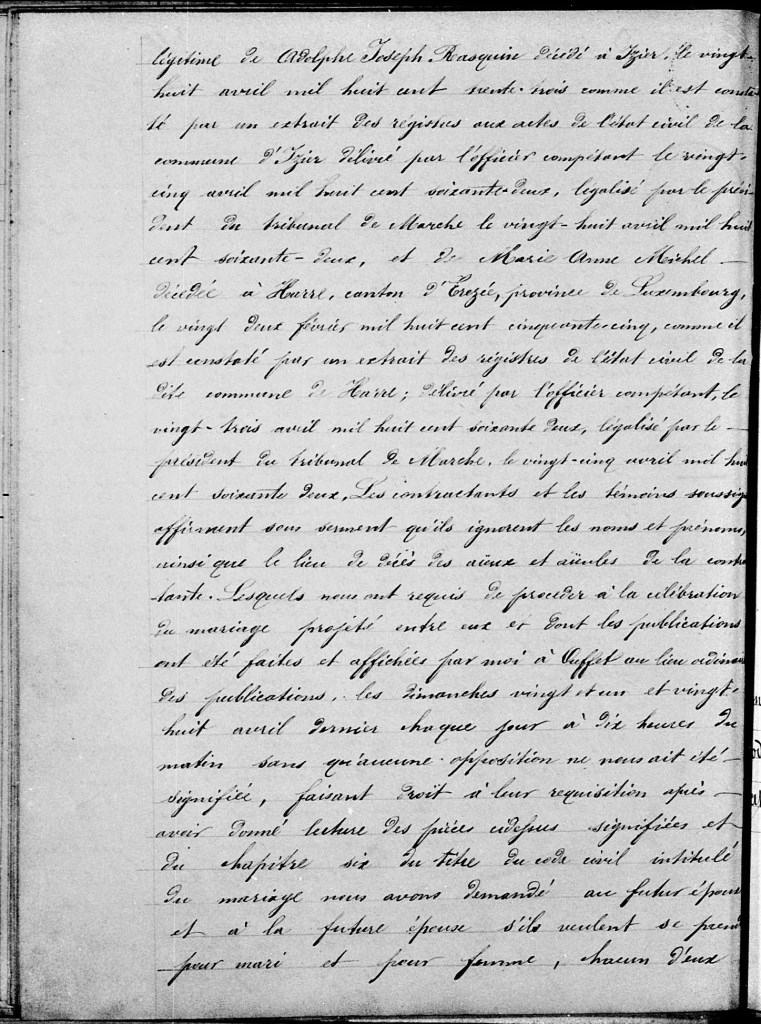 légitime de Adolphe Joseph Rasquin décédé à Izier, le vingt-
huit avril mil huit cent trente-trois comme il est consta
té par un extrait des régistres aux actes de l'état civil de la
commune d'Izier délivré par l'officier compétant le vingt-
cinq avril mil huit cent soixante-deux, légalisé par le prési-
dent du tribunal de Marche le vingt-huit avril mil huit
cent soixante-deux, et de Marie Anne Michel —
décédée à Harre, canton d'Erezée, province de Luxembourg,
le vingt deux février mil huit cent cinquante-cinq, comme il
est constaté par un extrait des régistres de l'état civil de la
dite commune de Harre; délivré par l'officier compétant, le
vingt-trois avril mil huit cent soixante deux, légalisé par le —
président du tribunal de Marche, le vingt-cinq avril mil hui
cent soixante deux. Les contractants et les témoins soussig
affirment sous serment qu'ils ignorent les noms et prénoms,
ainsi que le lieu de décès des aïeux et aïeules de la contra
tante. Lesquels nous ont requis de proceder à la célébration
du mariage projeté entre eux et dont les publications
ont été faites et affichées par moi à Ouffet au lieu ordinair
des publications, les dimanches vingt et un et vingt-
huit avril dernier chaque jour à dix heures du
matin sans qu'aucune opposition ne nous ait été —
signifiée, faisant droit à leur requisition après —
avoir donné lecture des pièces cidessus signifiées et
du chapitre six du titre du code civil intitulé
du mariage nous avons demandé au futur époux
et à la future épouse s'ils veulent se prend
pour mari et pour femme, chacun d'eux